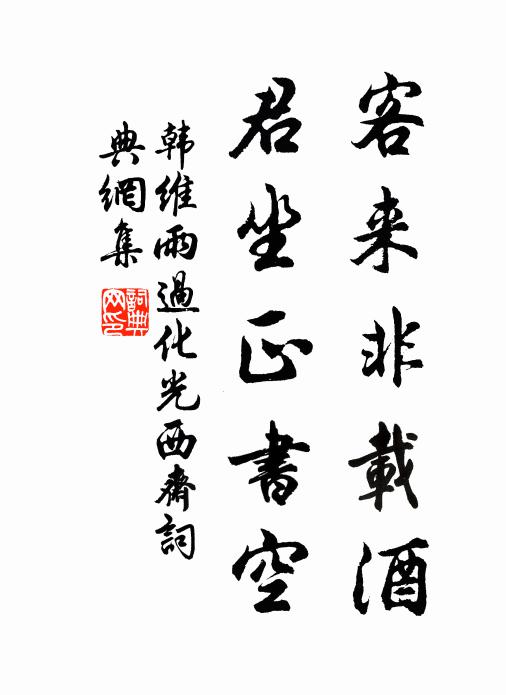 客来非載酒
君坐正書空
韩维雨過化光西齋詞
典網集
詞典網印